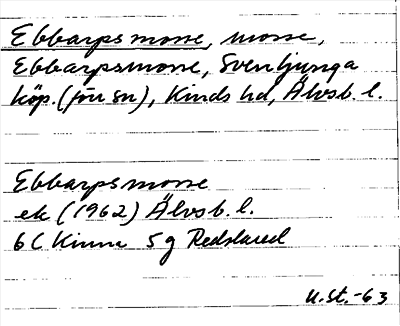 Ebbarpsmosse, mosse,
Ebbarpsmosse, Svenljunga
köp. (förs n), Kinds hd, Älvsb. l.
Ebbarpsmosse
ek (1962) Älvsb. l.
6 C Kinna 5 g Redslared
U.St. -63